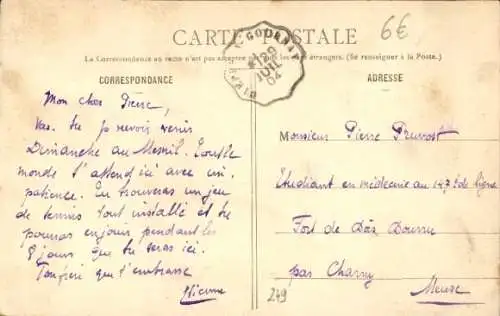 CARTE POSTALE
6€
DIEPPE A GOURNAY
29
JUIL
04
La Correspondance au recto n'est pas acceptée par tous les pays étrangers. (Se renseigner à la Poste.)
CORRESPONDANCE
ADRESSE
Mon cher Pierre,
Vas-tu pouvoir venir
Dimanche au Mesnil. Tout le
monde t'attend ici avec im-
patience. Tu trouveras un jeu
de tennis tout installé et tu
pourras en jouer pendant les
8 jours que tu seras ici.
Ton frère qui t'embrasse
Etienne
Monsieur Pierre Pruvost
Etudiant en médecine au 147e de ligne
Fort de Bois Bourru
par Charny
Meuse
249